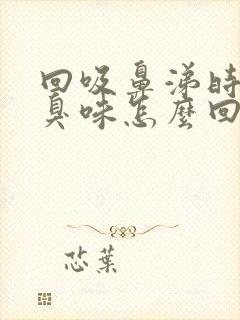 回吸鼻涕時
臭味怎麼回
芯葉